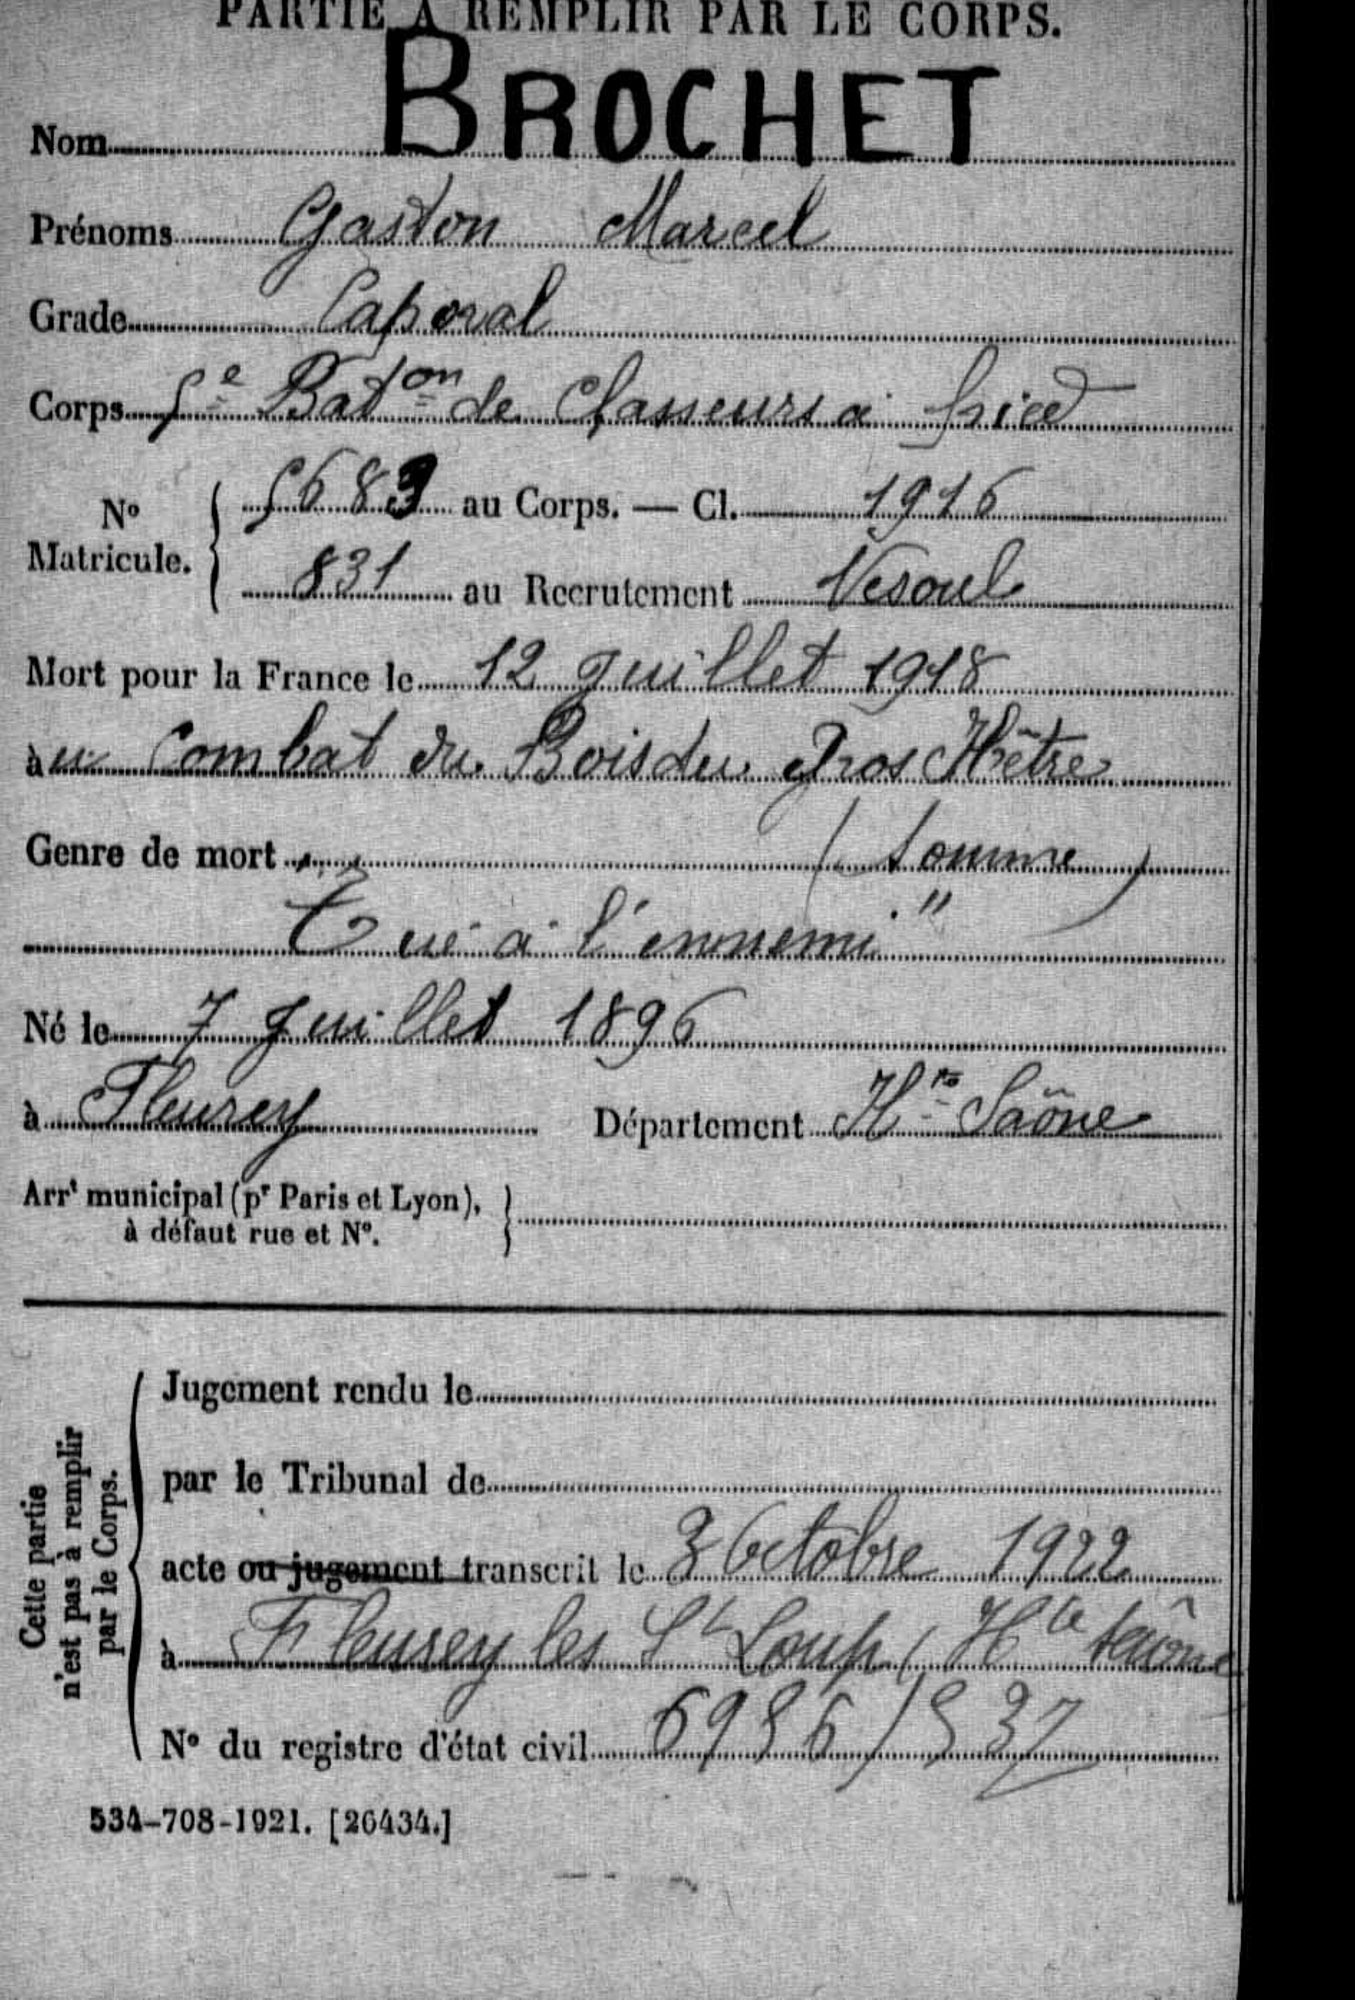 PARTIE À REMPLIR PAR LE CORPS.
Nom BROCHET
Prénoms Gaston Marcel
Grade Caporal
Corps 5e Baton de Chasseurs à pied
No Matricule. { 5683 au Corps. — Cl. 1916
831 au Recrutement Vesoul
Mort pour la France le 12 Juillet 1918
au Combat du Bois du Gros Hêtre
Genre de mort (Somme)
"Tué à l'ennemi"
Né le 7 Juillet 1896
à Fleurey Département Hte Saône
Arrt municipal (pr Paris et Lyon), }
à défaut rue et No.
Cette partie
n'est pas à remplir
par le Corps.
Jugement rendu le
par le Tribunal de
acte ou jugement transcrit le 3 Octobre 1922
à Fleurey les St Loup (Hte Saône
No du registre d'état civil 6986/537
534-708-1921. [26434.]